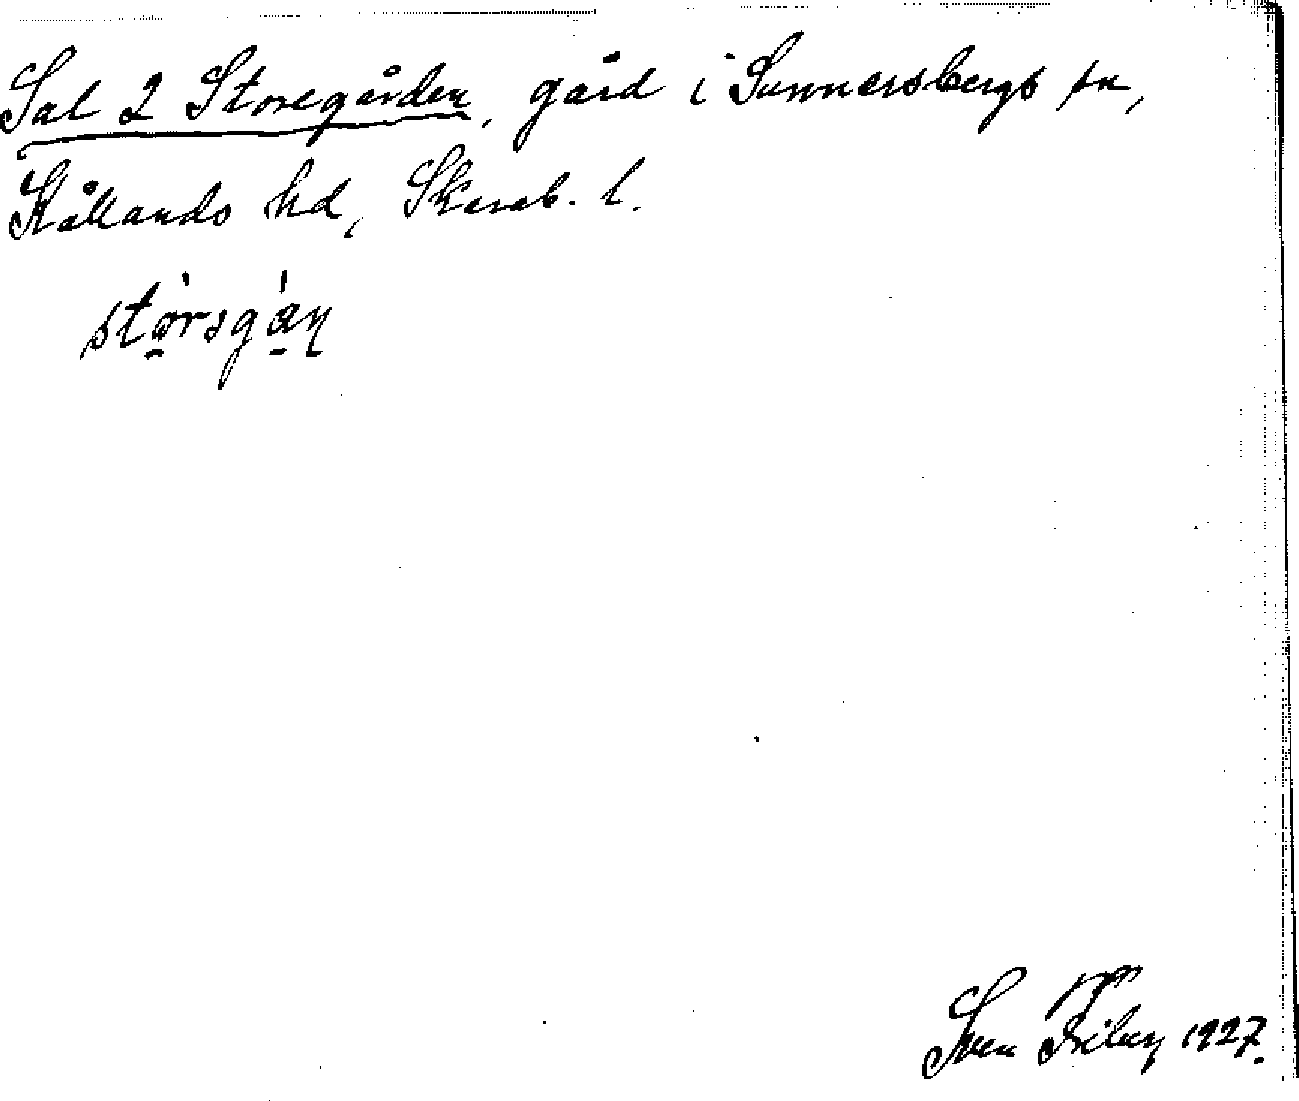 Sal 2 Storegården, gård i Sunnersbergs sn,
Kållands hd, Skarab. l.
stòrsgán
Sven Friberg 1927.